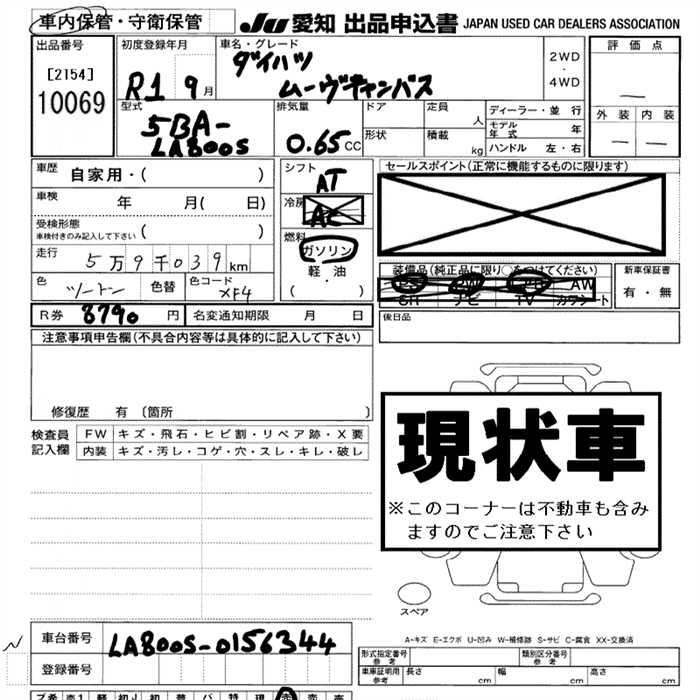 車内保管・守衛保管
JU 愛知 出品申込書 JAPAN USED CAR DEALERS ASSOCIATION
出品番号
[2154]
10069
初度登録年月
R1 9月
車名・グレード
ダイハツ
ムーヴキャンバス
2WD
・
4WD
評価点
—
外装 内装
— —
型式
5BA-
LA800S
排気量
0.65cc
ドア
形状
定員
人
積載
kg
ディーラー・並行
モデル
年式 年
ハンドル 左・右
車歴
自家用・( )
車検 年 月( 日)
受検形態
車検付きのみ記入して下さい ( )
走行
5万9千039km
色 ツートン 色替 色コード XF4
シフト
AT
冷房
AC
燃料
ガソリン
軽油
・
( )
セールスポイント(正常に機能するものに限ります)
装備品(純正品に限り○をつけてください)
PS PW AW
SR ナビ TV カワシート
新車保証書
有・無
R券 8790 円 名変通知期限 月 日
後日品
注意事項申告欄(不具合内容等は具体的に記入して下さい)
修復歴 有〔箇所 〕
検査員
記入欄
FW キズ・飛石・ヒビ割・リペア跡・X要
内装 キズ・汚レ・コゲ・穴・スレ・キレ・破レ
現状車
※このコーナーは不動車も含み
ますのでご注意下さい
スペア
A-キズ E-エクボ U-凹み W-補修跡 S-サビ C-腐食 XX-交換済
車台番号 LA800S-0156344
登録番号
形式指定番号
参考
類別区分番号
参考
車庫証明用
参考
長さ cm 幅 cm 高さ cm